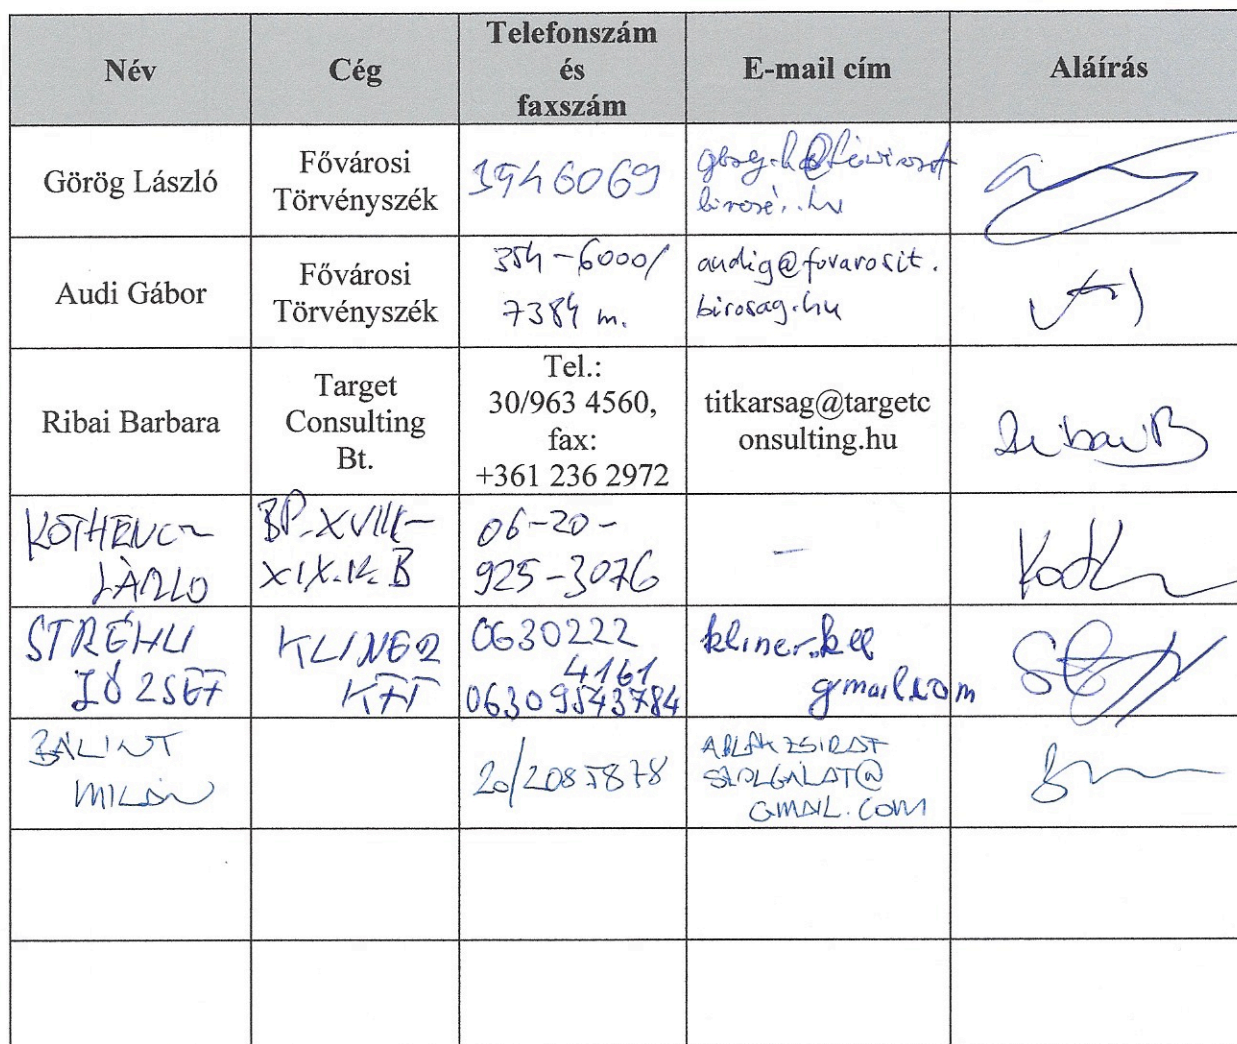 Név
Cég
Telefonszám
és
faxszám
E-mail cím
Aláírás
Görög László
Fővárosi
Törvényszék
3546069
Audi Gábor
Fővárosi
Törvényszék
354-6000/
7384 m.
audig@fovarosit.
birosag.hu
Ribai Barbara
Target
Consulting
Bt.
Tel.:
30/963 4560,
fax:
+361 236 2972
titkarsag@targetc
onsulting.hu
Ribai B
KOTHENCZ
LÁSZLÓ
BP. XVIII-
XIX.K.B
06-20-
925-3076
-
STRÉHLI
JÓZSEF
KLINER
KFT
0630222
4161
06309543784
gmail.com
BÁLINT
MILÁN
20/2085878
SZOLGÁLAT@
GMAIL.COM